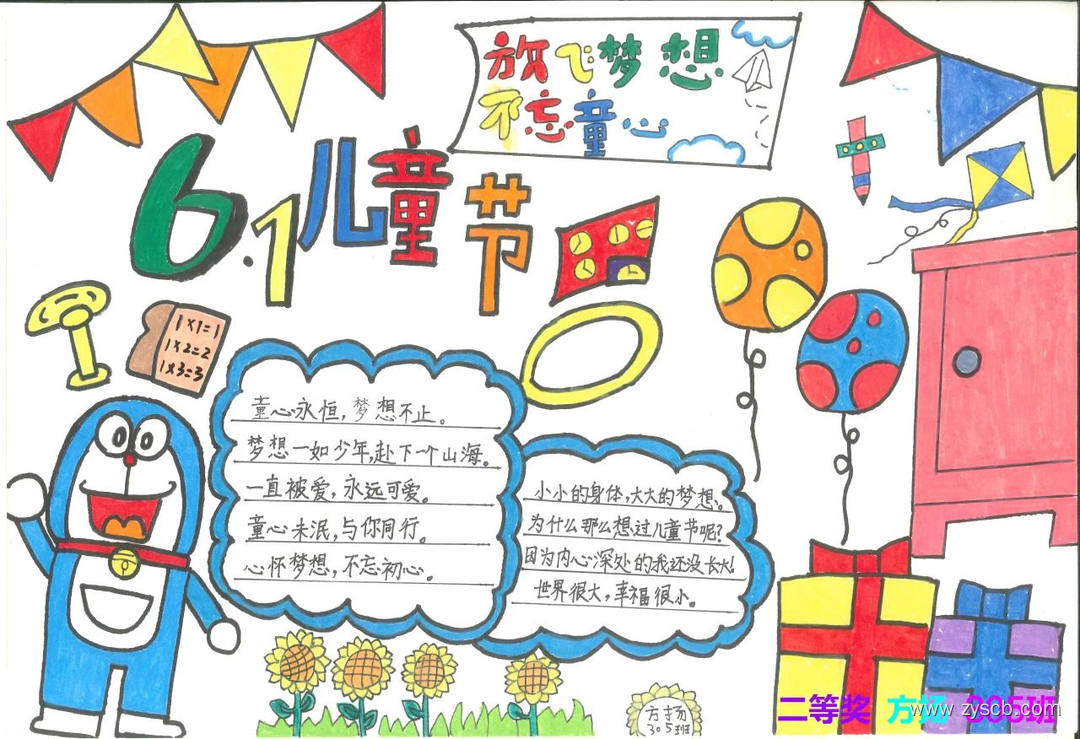 放飞梦想
不忘童心
6.1儿童节
1×1=1
1×2=2
1×3=3
童心永恒，梦想不止。
梦想一如少年，赴下一个山海。
一直被爱，永远可爱。
童心未泯，与你同行。
心怀梦想，不忘初心。
小小的身体，大大的梦想。
为什么那么想过儿童节呢？
因为内心深处的我还没长大！
世界很大，幸福很小。
方扬
305班
二等奖 方扬 305班
www.zyscb.com